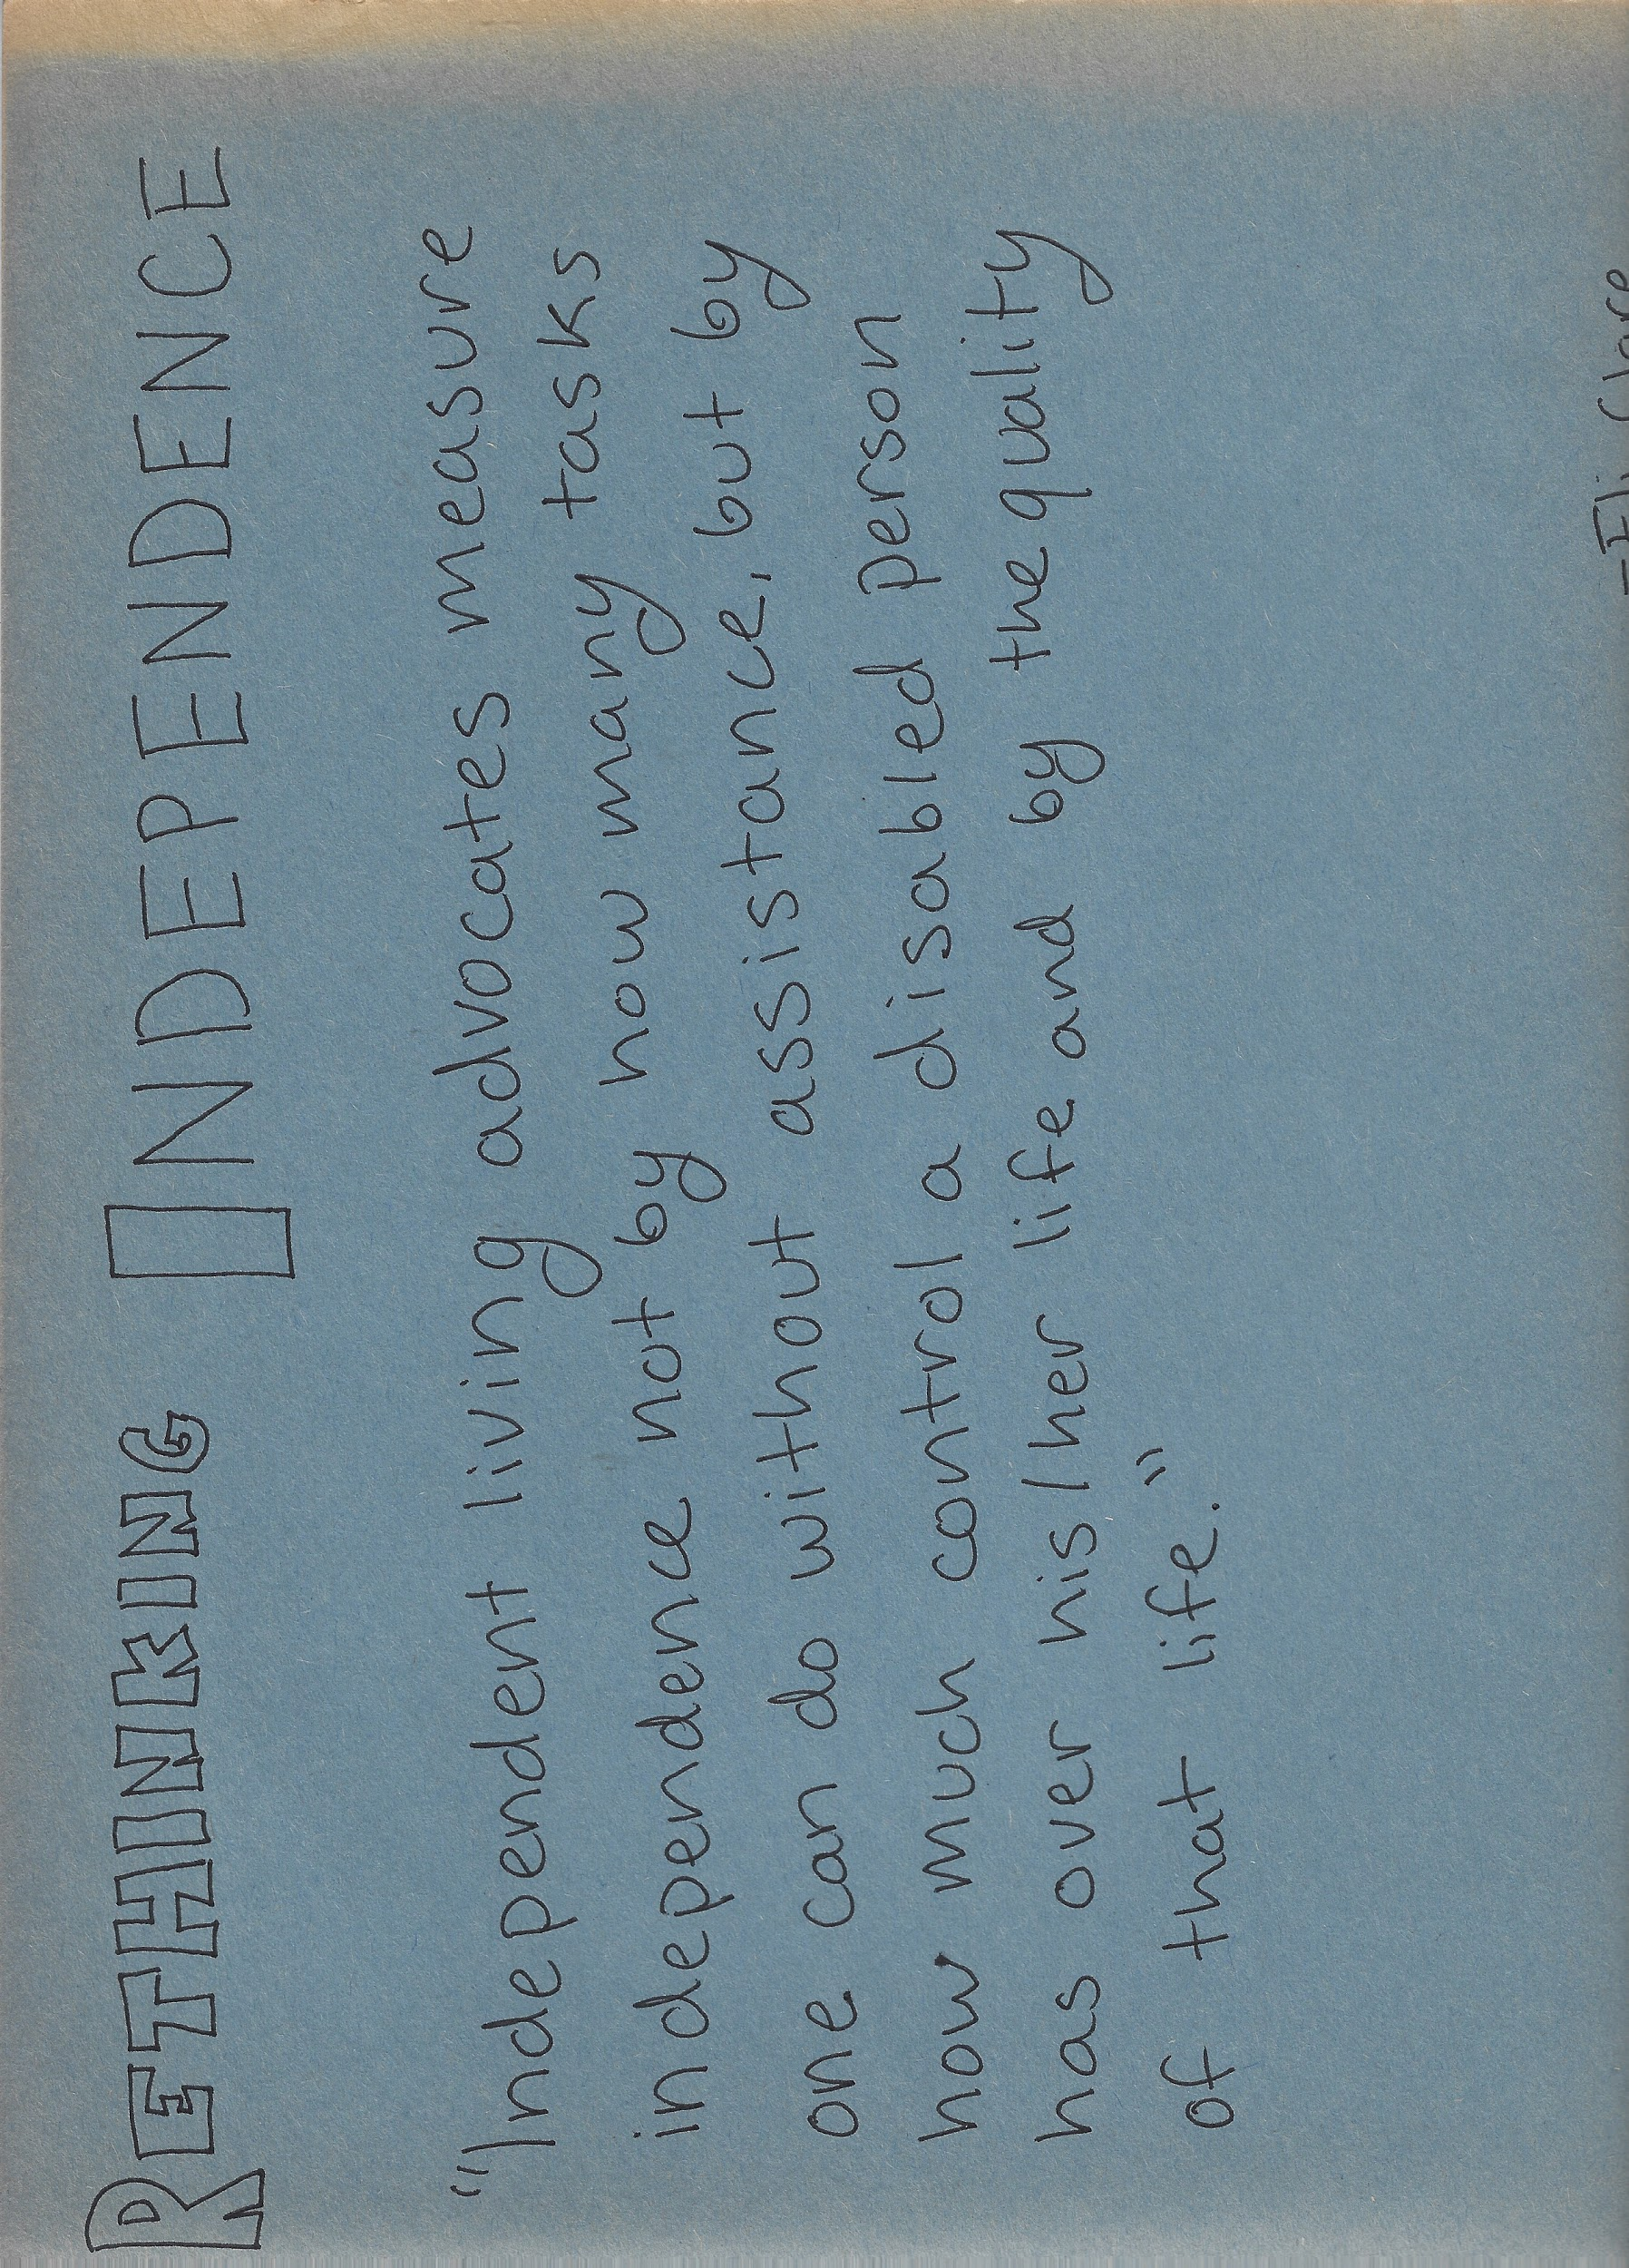 RETHINKING INDEPENDENCE
"Independent living advocates measure
independence not by how many tasks
one can do without assistance, but by
how much control a disabled person
has over his/her life and by the quality
of that life."
-Eli Clare